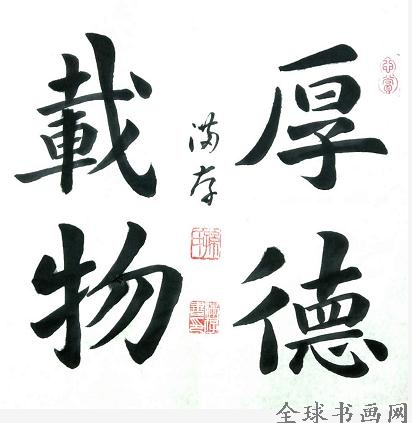 厚德
載物
满存
全球书画网